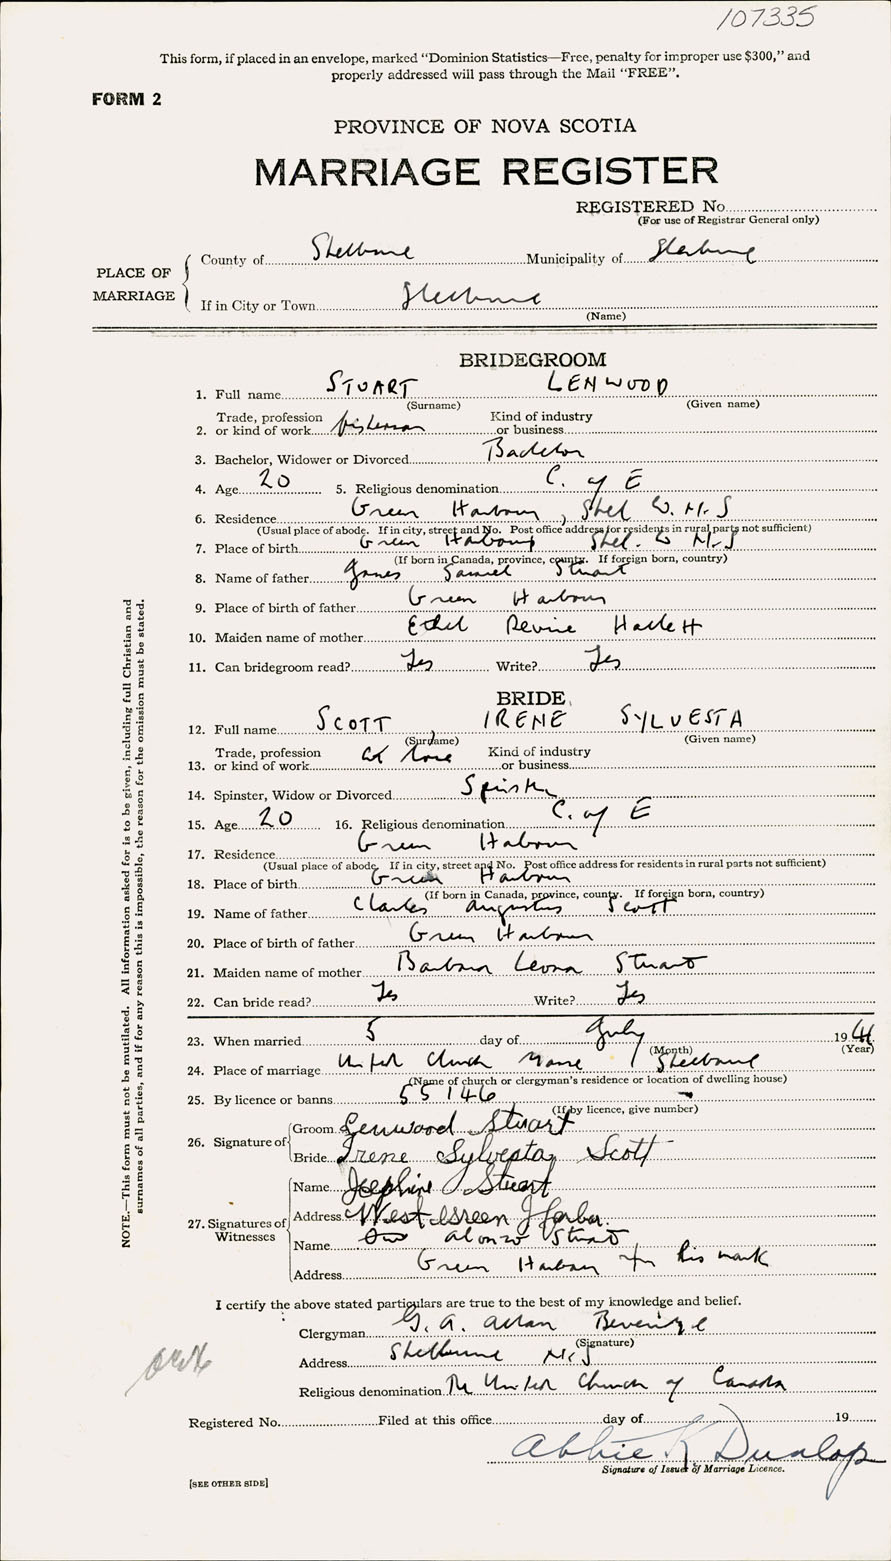 107335
This form, if placed in an envelope, marked "Dominion Statistics—Free, penalty for improper use $300," and
properly addressed will pass through the Mail "FREE".
FORM 2
PROVINCE OF NOVA SCOTIA
MARRIAGE REGISTER
REGISTERED No.
(For use of Registrar General only)
PLACE OF MARRIAGE
County of Shelburne Municipality of Shelburne
If in City or Town Shelburne
(Name)
BRIDEGROOM
1. Full name STUART LENWOOD
(Surname) (Given name)
2. Trade, profession or kind of work fisherman Kind of industry or business
3. Bachelor, Widower or Divorced Bachelor
4. Age 20 5. Religious denomination C. of E
6. Residence Green Harbour, Shel Co. N.S
(Usual place of abode. If in city, street and No. Post office address for residents in rural parts not sufficient)
7. Place of birth Green Harbour Shel. Co N.S
(If born in Canada, province, county. If foreign born, country)
8. Name of father James Samuel Stuart
9. Place of birth of father Green Harbour
10. Maiden name of mother Ethel Hallett
11. Can bridegroom read? Yes Write? Yes
BRIDE
12. Full name SCOTT IRENE SYLVESTA
(Surname) (Given name)
13. Trade, profession or kind of work at home Kind of industry or business
14. Spinster, Widow or Divorced Spinster
15. Age 20 16. Religious denomination C. of E
17. Residence Green Harbour
(Usual place of abode. If in city, street and No. Post office address for residents in rural parts not sufficient)
18. Place of birth Green Harbour
(If born in Canada, province, county. If foreign born, country)
19. Name of father Charles Augustus Scott
20. Place of birth of father Green Harbour
21. Maiden name of mother Barbara Leona Stuart
22. Can bride read? Yes Write? Yes
23. When married 5 day of July 1941
(Month) (Year)
24. Place of marriage United Church Manse, Shelburne
(Name of church or clergyman's residence or location of dwelling house)
25. By licence or banns 55146
(If by licence, give number)
26. Signature of Groom Lenwood Stuart
Bride Irene Sylvesta Scott
27. Signatures of Witnesses
Name Josephine Stuart
Address West Green Harbor.
Name Alonzo Stuart
Address Green Harbour his mark
I certify the above stated particulars are true to the best of my knowledge and belief.
Clergyman G. A. Allan Beveridge
(Signature)
Address Shelburne N.S
Religious denomination The United Church of Canada
Registered No. Filed at this office day of 19
Abbie K Dunlop
Signature of Issuer of Marriage Licence.
[SEE OTHER SIDE]
NOTE.—This form must not be mutilated. All information asked for is to be given, including full Christian and
surnames of all parties, and if for any reason this is impossible, the reason for the omission must be stated.